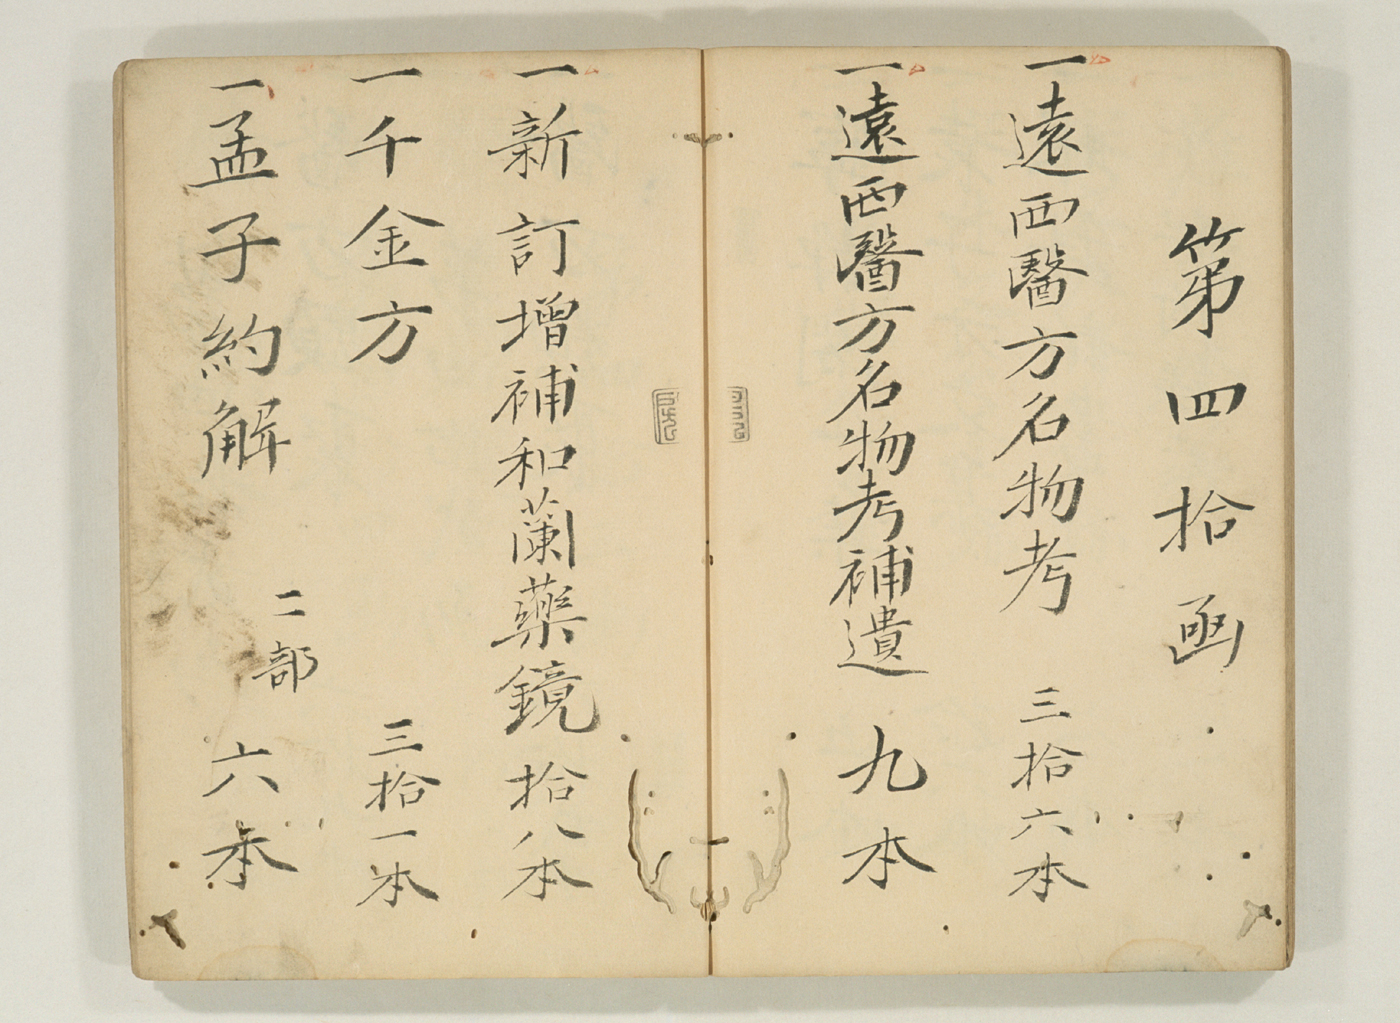 第四拾函
一遠西醫方名物考 三拾六本
一遠西醫方名物考補遺 九本
一新訂増補和蘭藥鏡 拾八本
一千金方 三拾一本
一孟子約解 二部 六本